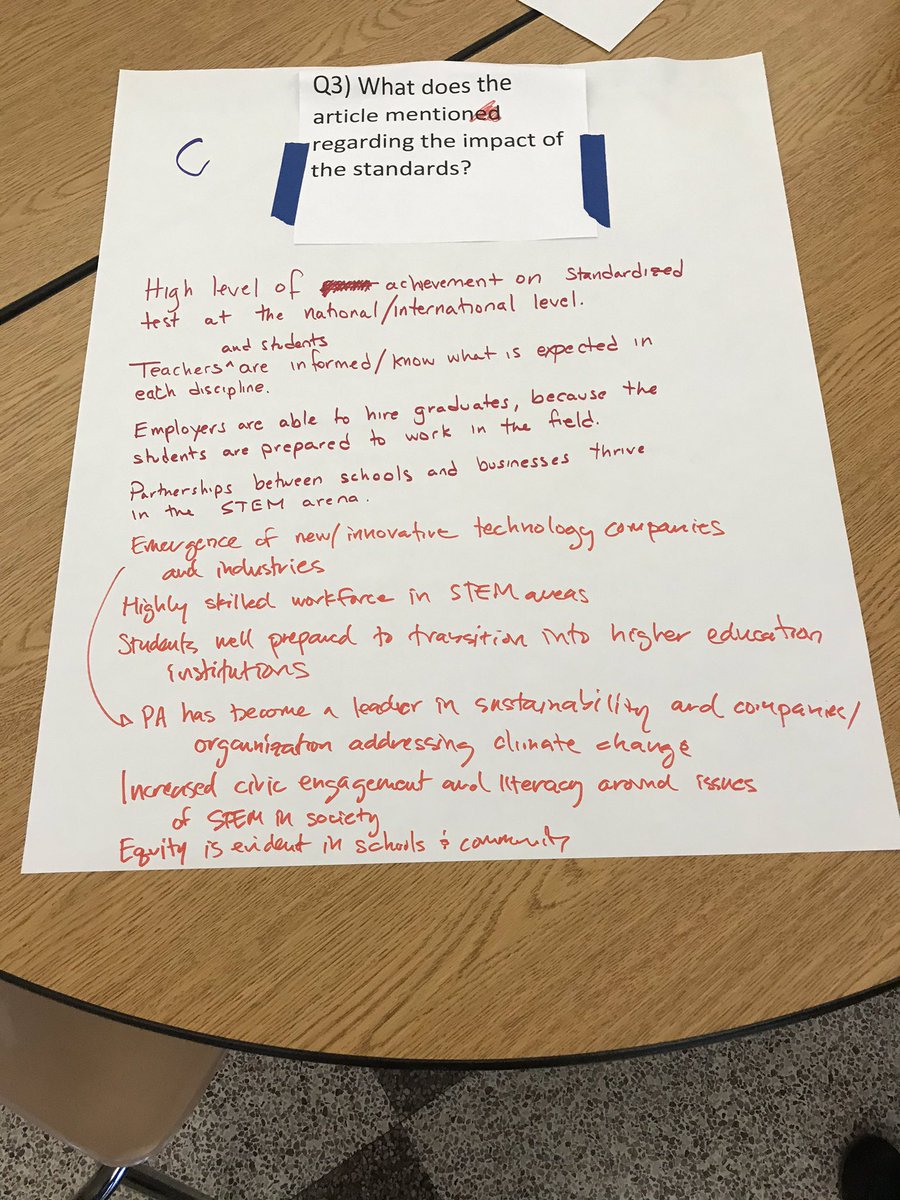 Q3) What does the
article mentioned
regarding the impact of
the standards?
C
High level of achevement on standardized
test at the national/international level.
and students
Teachers ^ are informed/know what is expected in
each discipline.
Employers are able to hire graduates, because the
students are prepared to work in the field.
Partnerships between schools and businesses thrive
in the STEM arena.
Emergence of new/innovative technology companies
and industries
Highly skilled workforce in STEM areas
Students well prepared to transition into higher education
institutions
PA has become a leader in sustainability and companies/
organization addressing climate change
Increased civic engagement and literacy around issues
of STEM in society
Equity is evident in schools & community